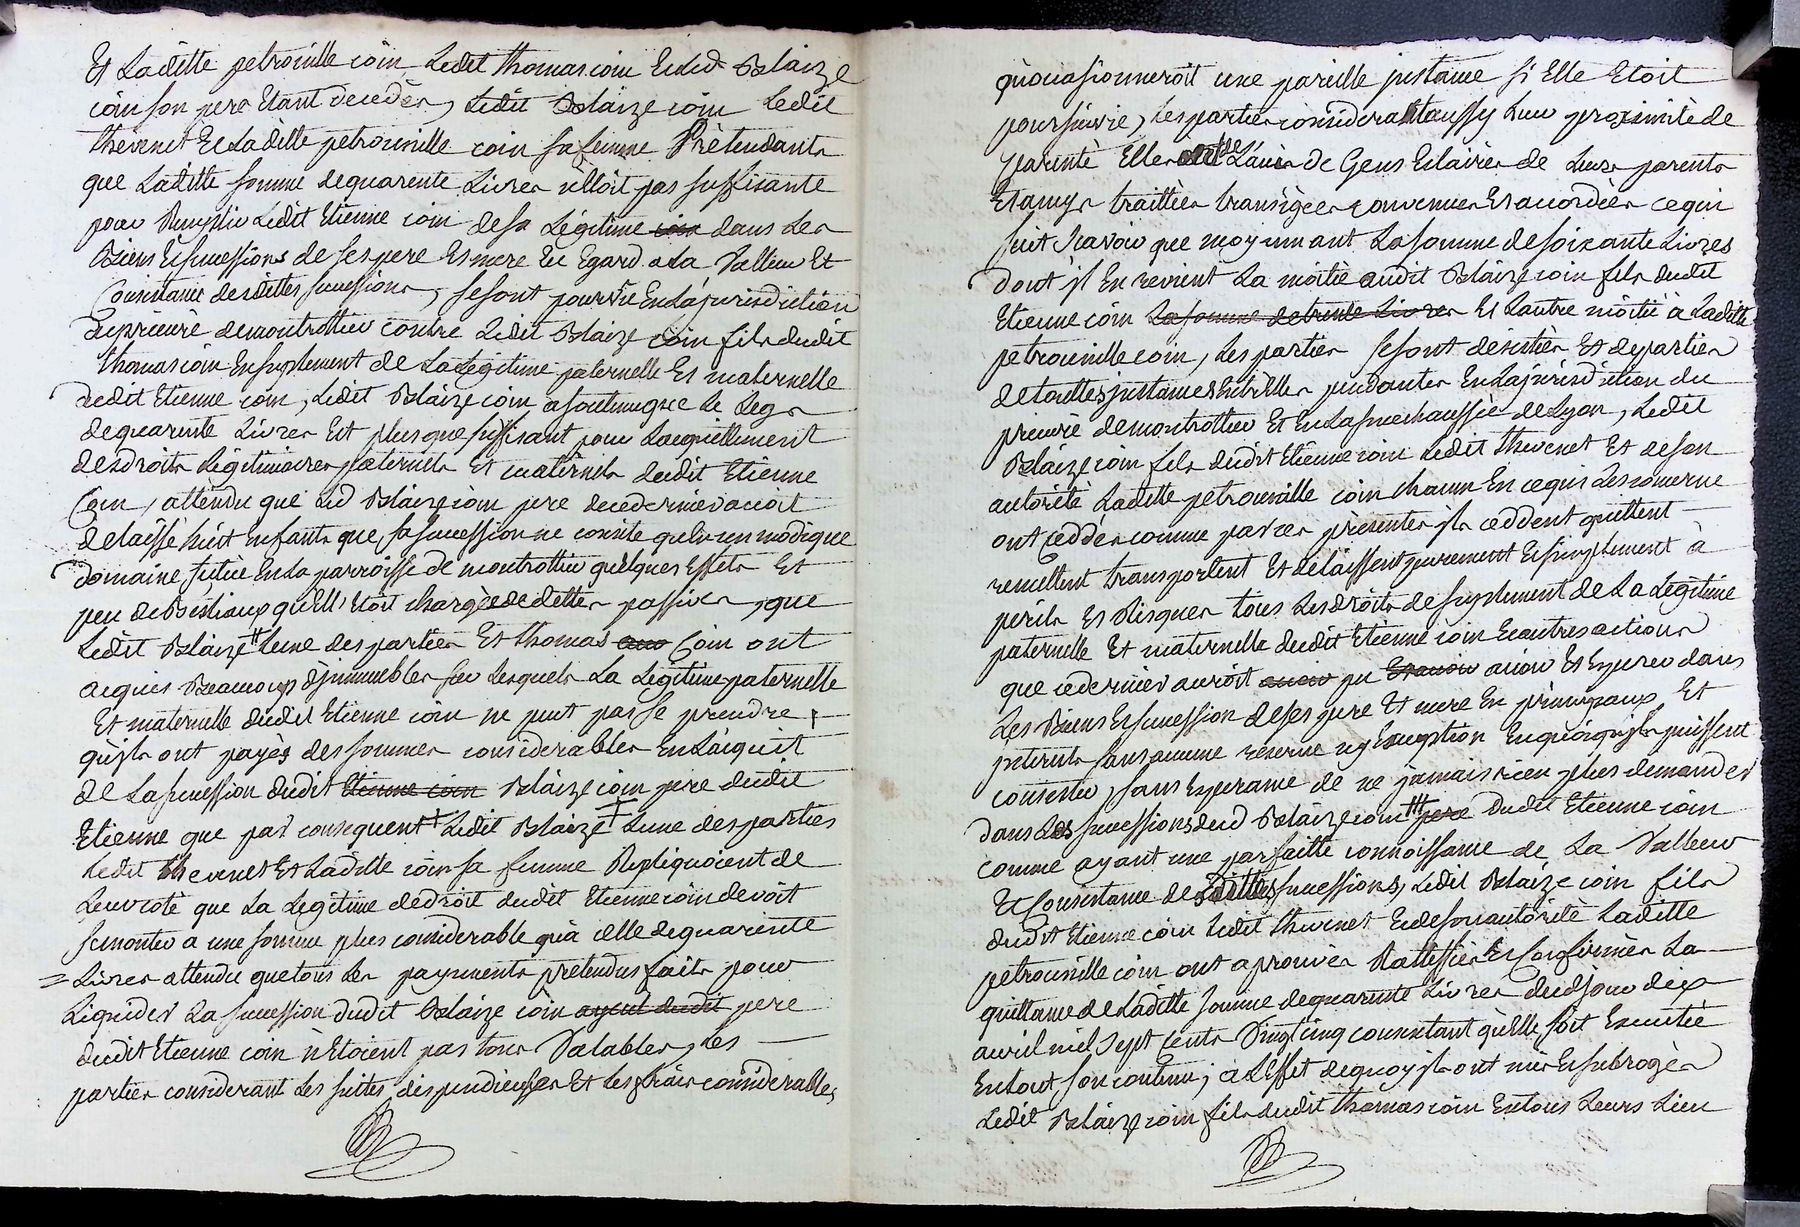 Et Laditte petronille coin Ledit thomas coin Et Led Blaize
coin son pere Etant decedés, Ledit Blaize coin Ledit
thevenet Et Laditte petronille coin sa femme Prétendants
que Laditte somme de quarente Livres n'étoit pas suffisante
pour Remplir Ledit Etienne coin de sa Légitime coin dans Les
Biens Et successions de ses pere Et mere Eu Egard a La Valleur Et
Consistance desdittes successions, se sont pourvûs En La jurisdiction
du prieuré de montrottier contre Ledit Blaize coin fils dudit
thomas coin En suplement de La Légitime paternelle Et maternelle
dudit Etienne coin, Ledit Blaize coin a soutenu que Le Legs
de quarente Livres Est plus que suffisant pour L'acquittement
des droits Légitimaires paternels Et maternels dudit Etienne
Coin, attendu que Led Blaize coin pere de ce dernier avoit
delaissé huit Enfants que sa succession ne consiste qu'En un modique
domaine, scitué En La parroisse de montrottier quelques Effets Et
peu de Bestiaux qu'Elle Etoit chargée de dettes passives, que
Ledit Blaize L'une des parties Et thomas Coin ont
acquis Beaucoup d'jmmeubles sur Lesquels La Légitime paternelle
Et maternelle dudit Etienne coin ne peut pas se prendre,
qu'jls ont payés des sommes considerables En L'acquit
de La succession dudit Etienne coin Blaize coin pere dudit
Etienne que par consequent Ledit Blaize L'une des parties
Ledit thevenet Et Laditte coin sa femme Repliquoient de
Leur coté que La Légitime de droit dudit Etienne coin devoit
se monter a une somme plus considerable qu'à celle de quarente
= Livres attendu que tous Les payements pretendus faits pour
Liquider La succession dudit Blaize coin ayeul dudit pere
dudit Etienne coin n'Etoient pas tous Valables, Les
parties considerant Les suites dispendieuses Et Les frais considerables
qu'occasionneroit une pareille jnstance si Elle Etoit
poursuivie, Les parties considerant aussy Leur proximité de
parenté Elles ont de L'avis de Gens Eclairés de Leurs parents
Et amys traittées transigées convenues Et accordées ce qui
suit sçavoir que moyennant La somme de soixante Livres
dont jl En revient La moitié audit Blaize coin fils dudit
Etienne coin La somme de trente Livres Et L'autre moitié à Laditte
petronille coin, Les parties se sont desistées Et departies
de touttes jnstances Entr'Elles pendantes En La jurisdiction du
prieuré de montrottier Et En La senechaussée de Lyon, Ledit
Blaize coin fils dudit Etienne coin Ledit thevenet Et de son
autorité Laditte petronille coin chacun En ce qui Les concerne
ont cedés comme par ces présentes jls ceddent quittent
remettent transportent Et délaissent purement Et simplement à
périls Et Risques tous Les droits de suplement de La Légitime
paternelle Et maternelle dudit Etienne coin Et autres actions
que ce dernier auroit avoir pu Et avoir avoir Et Exercer dans
Les Biens Et succession de ses pere Et mere En principaux, Et
jnterets sans aucune reserve ny Exception En quoi qu'jls puissent
consister, sans Esperance de ne jamais rien plus demander
dans Les successions dud Blaize coin pere dudit Etienne coin
comme ayant une parfaitte connoissance de La Valleur
Et Consistance desdittes successions, Ledit Blaize coin fils
dudit Etienne coin Ledit thevenet Et de son autorité Laditte
petronille coin ont aprouvés Rattiffiés Et Confirmés La
quittance de Laditte somme de quarente Livres dud jour dix
avril mil sept cents vingt cinq consentant qu'Elle soit Executée
En tout son contenu; à L'effet de quoy jls ont mis Et subrogés
Ledit Blaize coin fils dudit thomas coin En tous Leurs Lieu